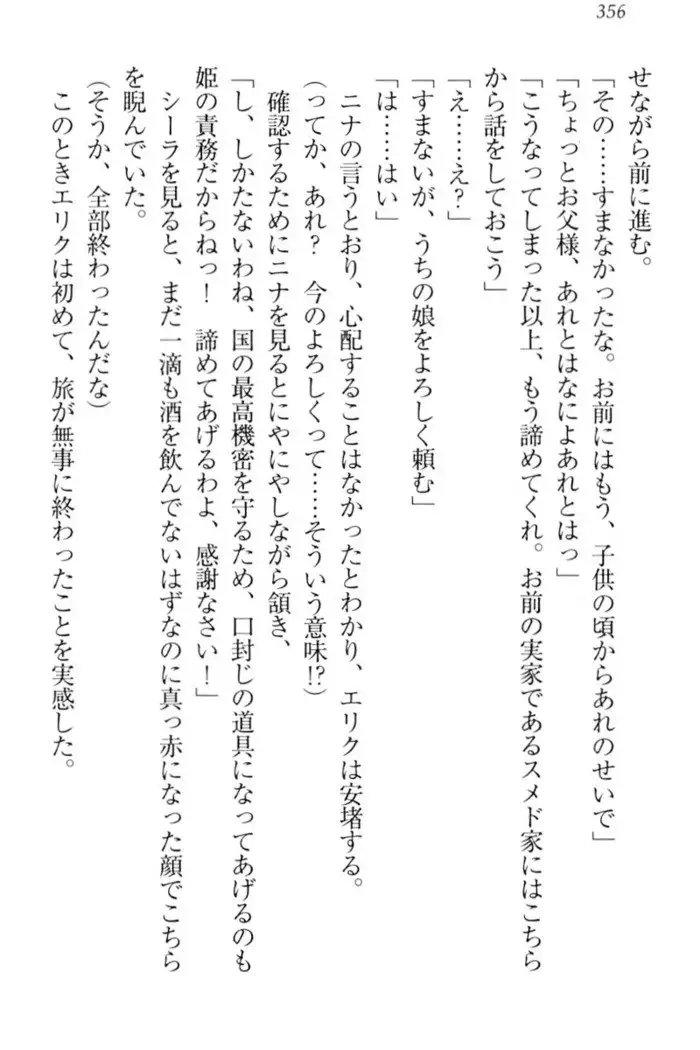 356
せながら前に進む。
「その……すまなかったな。お前にはもう、子供の頃からあれのせいで」
「ちょっとお父様、あれとはなによあれとはっ」
「こうなってしまった以上、もう諦めてくれ。お前の実家であるスメド家にはこちら
から話をしておこう」
「え……え？」
「すまないが、うちの娘をよろしく頼む」
「は……はい」
ニナの言うとおり、心配することはなかったとわかり、エリクは安堵する。
（ってか、あれ？　今のよろしくって……そういう意味!?）
確認するためにニナを見るとにやにやしながら頷き、
「し、しかたないわね、国の最高機密を守るため、口封じの道具になってあげるのも
姫の責務だからねっ！　諦めてあげるわよ、感謝なさい！」
シーラを見ると、まだ一滴も酒を飲んでないはずなのに真っ赤になった顔でこちら
を睨んでいた。
（そうか、全部終わったんだな）
このときエリクは初めて、旅が無事に終わったことを実感した。